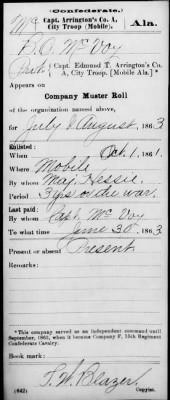 (Confederate.)
Mc Capt. Arrington's Co. A, City Troop (Mobile). Ala.
D. C. McVoy
Capt. Edmund T. Arrington's Co. A, City Troop. [Mobile Ala.]*
Appears on
Company Muster Roll
of the organization named above,
for July & August, 1863
Enlisted:
When Oct. 1, 1861.
Where Mobile
By whom Maj. Hessee
Period 3 yrs or the war.
Last paid:
By whom Capt. McVoy
To what time June 30, 1863
Present or absent Present
Remarks:
*This company served as an independent command until September, 1863, when it became Company F, 15th Regiment Confederate Cavalry.
Book mark:
T. W. Blazer
(642) Copyist.